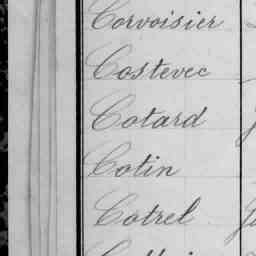 Corvoisier
Costevec
Cotard
Cotin
Cotrel